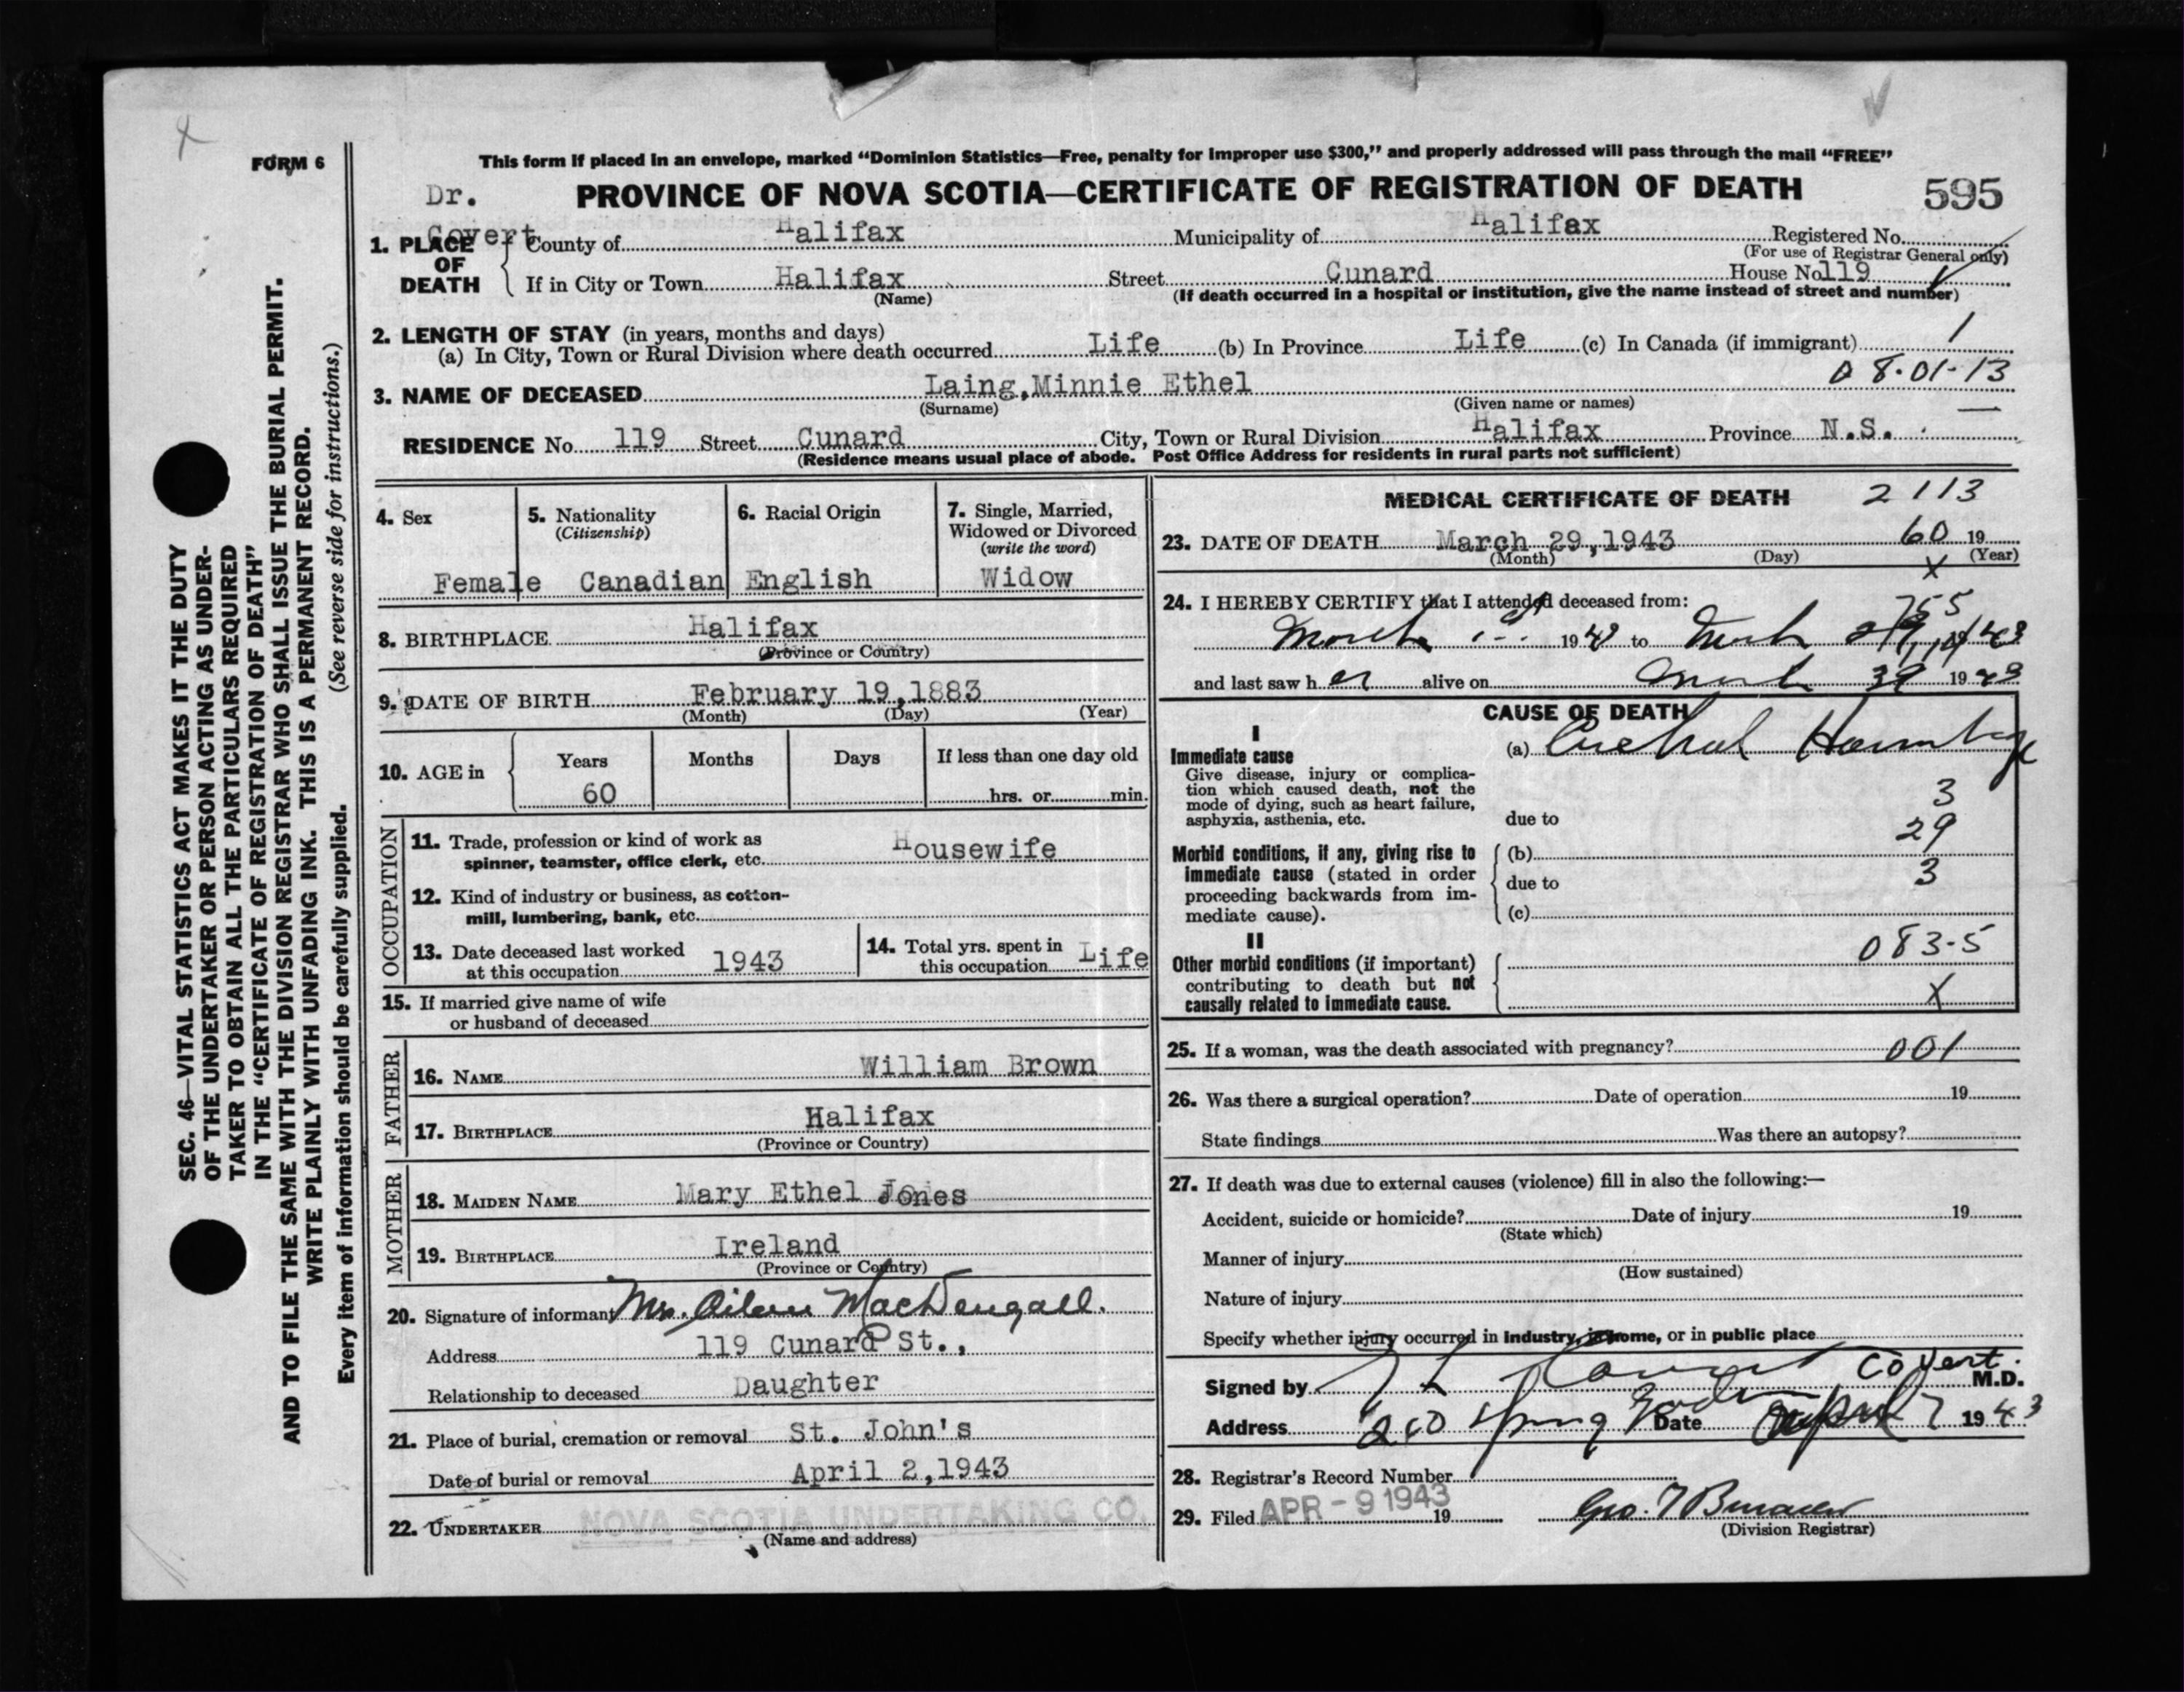 FORM 6
This form if placed in an envelope, marked “Dominion Statistics—Free, penalty for improper use $300,” and properly addressed will pass through the mail “FREE”
Dr. Covert
PROVINCE OF NOVA SCOTIA—CERTIFICATE OF REGISTRATION OF DEATH
595
1. PLACE OF DEATH County of Halifax Municipality of Halifax Registered No.
(For use of Registrar General only)
If in City or Town Halifax Street Cunard House No. 119
(Name) (If death occurred in a hospital or institution, give the name instead of street and number)
2. LENGTH OF STAY (in years, months and days)
(a) In City, Town or Rural Division where death occurred Life (b) In Province Life (c) In Canada (if immigrant) 1
08·01-13
3. NAME OF DECEASED Laing, Minnie Ethel
(Surname) (Given name or names)
RESIDENCE No. 119 Street Cunard City, Town or Rural Division Halifax Province N.S.
(Residence means usual place of abode. Post Office Address for residents in rural parts not sufficient)
4. Sex
Female
5. Nationality
(Citizenship)
Canadian
6. Racial Origin
English
7. Single, Married,
Widowed or Divorced
(write the word)
Widow
8. BIRTHPLACE Halifax
(Province or Country)
9. DATE OF BIRTH February 19,1883
(Month) (Day) (Year)
10. AGE in Years Months Days If less than one day old
60 hrs. or min.
OCCUPATION
11. Trade, profession or kind of work as
spinner, teamster, office clerk, etc. Housewife
12. Kind of industry or business, as cotton-
mill, lumbering, bank, etc.
13. Date deceased last worked
at this occupation 1943
14. Total yrs. spent in
this occupation Life
15. If married give name of wife
or husband of deceased
FATHER
16. NAME William Brown
17. BIRTHPLACE Halifax
(Province or Country)
MOTHER
18. MAIDEN NAME Mary Ethel Jones
19. BIRTHPLACE Ireland
(Province or Country)
20. Signature of informant Mrs. Aileen MacDougall.
Address 119 Cunard St.,
Relationship to deceased Daughter
21. Place of burial, cremation or removal St. John's
Date of burial or removal April 2,1943
22. UNDERTAKER NOVA SCOTIA UNDERTAKING CO.
(Name and address)
MEDICAL CERTIFICATE OF DEATH 2113
23. DATE OF DEATH March 29,1943 60 19
(Month) (Day) (Year)
X
24. I HEREBY CERTIFY that I attended deceased from: 755
March 1943 to March 29, 1943
and last saw her alive on March 1943
CAUSE OF DEATH
I
Immediate cause (a) Cerebral Hemorrhage
Give disease, injury or complica-
tion which caused death, not the
mode of dying, such as heart failure,
asphyxia, asthenia, etc.
due to
3
29
3
Morbid conditions, if any, giving rise to
immediate cause (stated in order
proceeding backwards from im-
mediate cause).
(b)
due to
(c)
II
Other morbid conditions (if important)
contributing to death but not
causally related to immediate cause.
083-5
X
25. If a woman, was the death associated with pregnancy? 001
26. Was there a surgical operation? Date of operation 19
State findings Was there an autopsy?
27. If death was due to external causes (violence) fill in also the following:—
Accident, suicide or homicide? Date of injury 19
(State which)
Manner of injury
(How sustained)
Nature of injury
Specify whether injury occurred in industry, in home, or in public place
Signed by Covert M.D.
Address Spring Garden Date April 7 1943
28. Registrar's Record Number
29. Filed APR - 9 1943 19
(Division Registrar)
SEC. 46—VITAL STATISTICS ACT MAKES IT THE DUTY
OF THE UNDERTAKER OR PERSON ACTING AS UNDER-
TAKER TO OBTAIN ALL THE PARTICULARS REQUIRED
IN THE “CERTIFICATE OF REGISTRATION OF DEATH”
AND TO FILE THE SAME WITH THE DIVISION REGISTRAR WHO SHALL ISSUE THE BURIAL PERMIT.
WRITE PLAINLY WITH UNFADING INK. THIS IS A PERMANENT RECORD.
Every item of information should be carefully supplied. (See reverse side for instructions.)